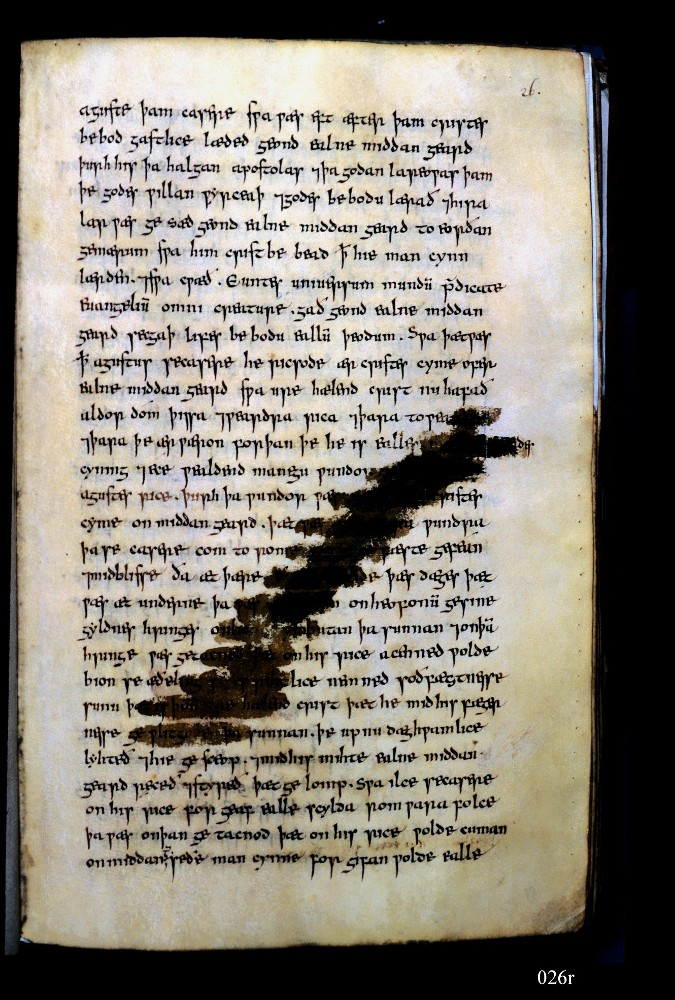 26.
aguste þam casere swa wæs eft æfter þam cristes
bebod gastlice læded geond ealne middan geard
þurh his þa halgan apostolas ⁊ þa godan lareowas þam
þe godes willan wyrceaþ ⁊ godes bebodu lærað ⁊ hira
lar wæs ge sæd geond ealne middan geard to eorðan
gemærum swa him crist be bead ꝥ hie man cynn
lærden. ⁊ swa cwæð. Euntes uniuersum mundū p̄dicate
euangeliū omni creature. gað geond ealne middan
geard secgaþ lifes be bodu eallū þeodum. Swa þæt wæs
ꝥ agustus se casere he ricsode ær cristes cyme ofer
ealne middan geard swa ure hælend crist nu hafað
aldor dom þissa ⁊ weardra rica ⁊ þara
⁊ þara þe ær wæron forþan þe he is
cyning ⁊ se wealdend manegu wundor
agustes rice. þurh þa wundor cristes
cyme on middan geard. þæt wundra
þa se casere com to rome
⁊ mid blisse ða æt þære þæs dæges þæt
wæs æt underne þa on heofonū gesine
gyldnes hringes butan þa sunnan ⁊ on þā
hringe wæs on his rice acænned wolde
bion se æðeling nemned soðfæstnesse
sunu þæt hælend crist þæt he mid his fæger
nesse sunnan. þe up nu dæghwamlice
lyhteð ⁊ hie ge sceop. ⁊ mid his mihte ealne middan
geard receð ⁊ styreð þæt ge lomp. Swa ilce se casere
on his rice for geaf ealle scylda romwara folce
þa wæs on þan ge tacnod þæt on his rice wolde cuman
on middan se ðe man cynne for gifan wolde ealle
026r